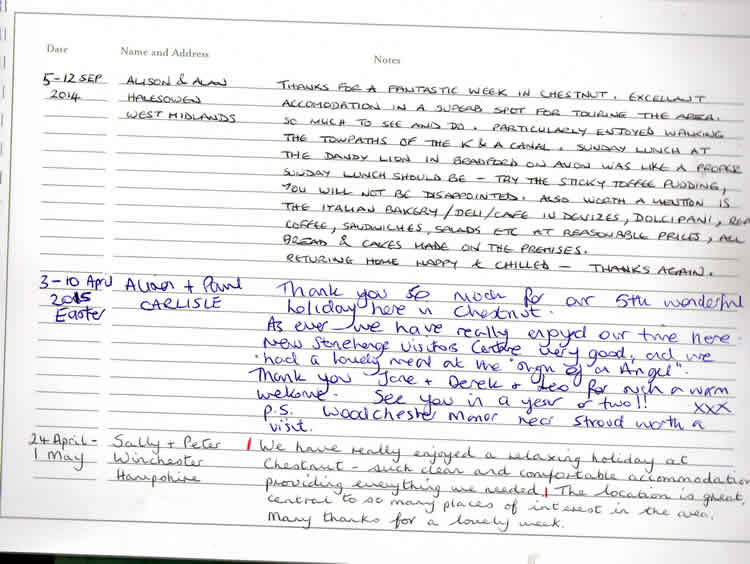 Date Name and Address Notes
5-12 SEP ALISON & ALAN THANKS FOR A FANTASTIC WEEK IN CHESTNUT. EXCELLANT
2014 HALESOWEN ACCOMODATION IN A SUPERB SPOT FOR TOURING THE AREA.
WEST MIDLANDS SO MUCH TO SEE AND DO. PARTICULARLY ENJOYED WALKING
THE TOWPATHS OF THE K & A CANAL. SUNDAY LUNCH AT
THE DANDY LION IN BRADFORD ON AVON WAS LIKE A PROPER
SUNDAY LUNCH SHOULD BE - TRY THE STICKY TOFFEE PUDDING,
YOU WILL NOT BE DISAPPOINTED. ALSO WORTH A MENTION IS
THE ITALIAN BAKERY/DELI/CAFE IN DEVIZES, DOLCIPANI, REA
COFFEE, SAUDWICHES, SALADS ETC AT REASONABLE PRICES, ALL
BREAD & CAKES MADE ON THE PREMISES.
RETURING HOME HAPPY & CHILLED - THANKS AGAIN.
3-10 April Alison + Paul Thank you so much for our 5th wonderful
2015 CARLISLE holiday here in Chestnut.
Easter As ever we have really enjoyed our time here.
New Stonehenge Visitors Centre very good, and we
had a lovely meal at the "sign of an Angel".
Thank you Jane + Derek + Leo for such a warm
welcome. See you in a year or two!! xxx
P.S. Woodchester Manor near Stroud worth a
visit.
24 April - Sally + Peter We have really enjoyed a relaxing holiday at
1 May Winchester Chestnut - such clean and comfortable accommodation
Hampshire providing everything we needed. The location is great,
central to so many places of interest in the area.
Many thanks for a lovely week.